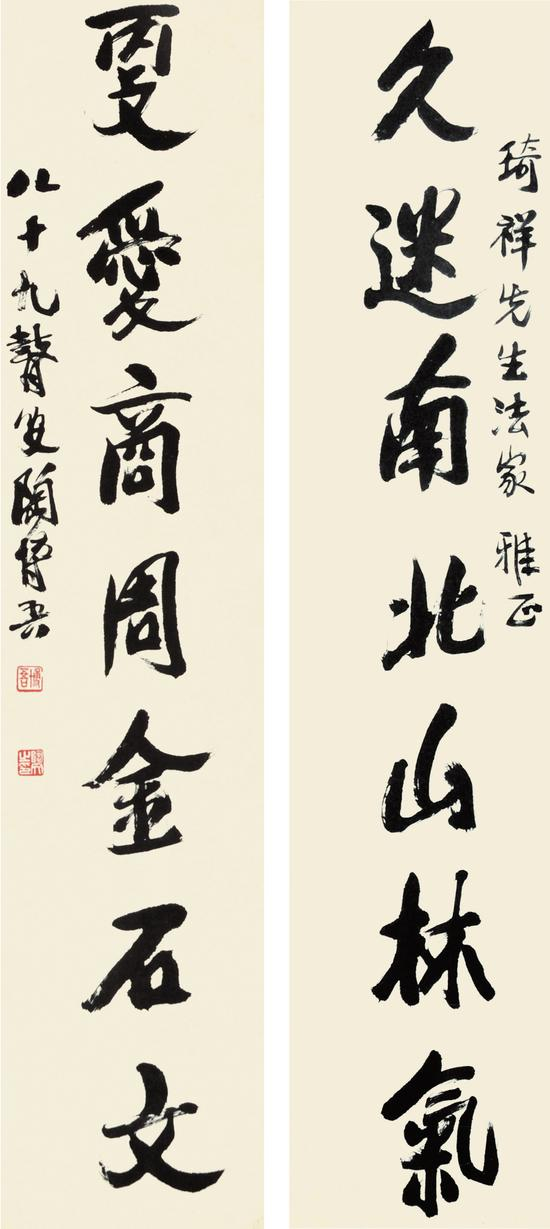 琦祥先生法家 雅正
久迷南北山林氣
㪅愛商周金石文
八十九瞽叟陶博吾
博吾